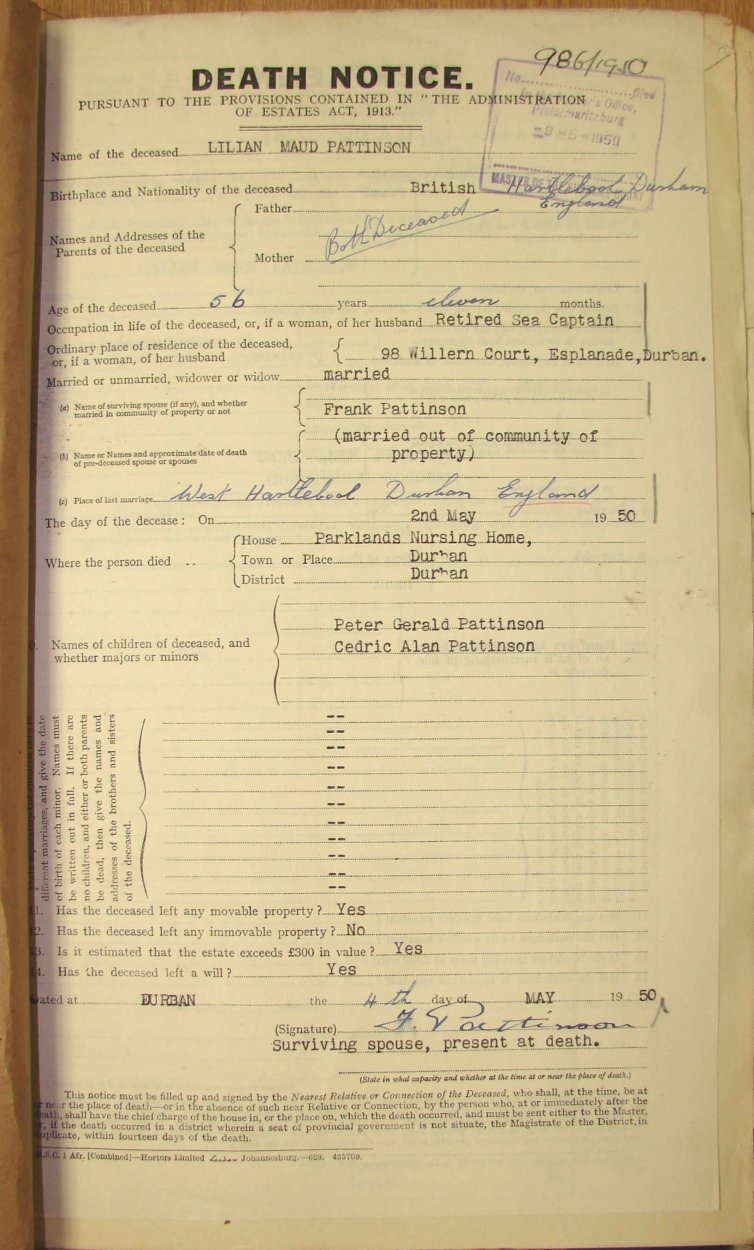 986/1950
DEATH NOTICE.
PURSUANT TO THE PROVISIONS CONTAINED IN "THE ADMINISTRATION
OF ESTATES ACT, 1913."
No. filed
Office,
-9-5-1950
Name of the deceased LILIAN MAUD PATTINSON
Birthplace and Nationality of the deceased British Hartlebool, Durham
England
Names and Addresses of the
Parents of the deceased
Father
Both Deceased
Mother
Age of the deceased 56 years eleven months.
Occupation in life of the deceased, or, if a woman, of her husband Retired Sea Captain
Ordinary place of residence of the deceased,
or, if a woman, of her husband
98 Willern Court, Esplanade, Durban.
Married or unmarried, widower or widow married
(a) Name of surviving spouse (if any), and whether
married in community of property or not
Frank Pattinson
(b) Name or Names and approximate date of death
of pre-deceased spouse or spouses
(married out of community of
property)
(c) Place of last marriage West Hartlebool Durham England
The day of the decease: On 2nd May 1950
Where the person died ..
House Parklands Nursing Home,
Town or Place Durban
District Durban
Names of children of deceased, and
whether majors or minors
Peter Gerald Pattinson
Cedric Alan Pattinson
different marriages, and give the date
of birth of each minor. Names must
be written out in full. If there are
no children, and either or both parents
be dead, then give the names and
addresses of the brothers and sisters
of the deceased.
--
--
--
--
--
--
--
--
--
--
1. Has the deceased left any movable property? Yes
2. Has the deceased left any immovable property? No
3. Is it estimated that the estate exceeds £300 in value? Yes
4. Has the deceased left a will? Yes
ated at DURBAN the 4th day of MAY 1950
(Signature) F. Pattinson
Surviving spouse, present at death.
(State in what capacity and whether at the time at or near the place of death.)
This notice must be filled up and signed by the Nearest Relative or Connection of the Deceased, who shall, at the time, be at
or near the place of death—or in the absence of such near Relative or Connection, by the person who, at or immediately after the
death, shall have the chief charge of the house in, or the place on, which the death occurred, and must be sent either to the Master,
or, if the death occurred in a district wherein a seat of provincial government is not situate, the Magistrate of the District, in
duplicate, within fourteen days of the death.
S.C. 1 Afr. (Combined)—Hortors Limited Johannesburg.—628. 435709.